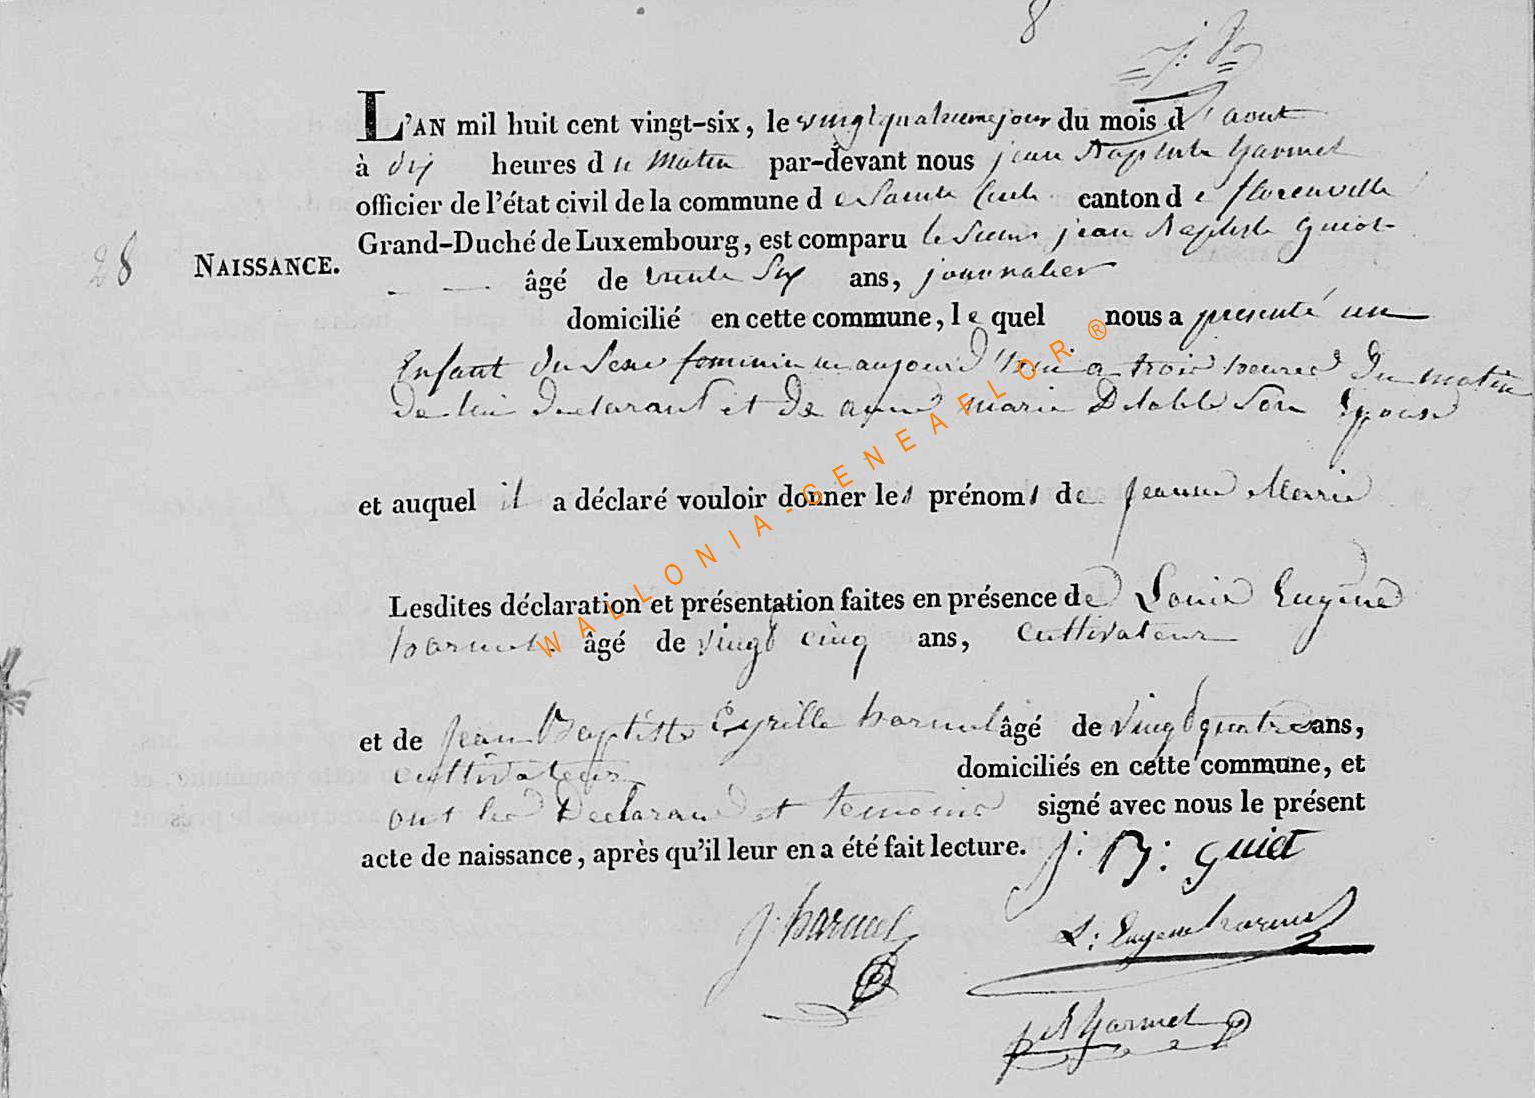 8
L'AN mil huit cent vingt-six, le vingt quatrieme jour du mois d'aout
à dix heures du matin par-devant nous jean Baptiste harmel
officier de l'état civil de la commune de Sainte Cecile canton de florenville
Grand-Duché de Luxembourg, est comparu le Sieur jean Baptiste guiot
28 NAISSANCE.
âgé de trente Six ans, journalier
domicilié en cette commune, le quel nous a presenté un
Enfant du Sexe feminin né aujourd'hui a trois heures du matin
de lui declarant et de anne marie Son Epouse
et auquel il a déclaré vouloir donner les prénoms de Jeanne Marie
Lesdites déclaration et présentation faites en présence de Louis Eugène
harmel âgé de vingt cinq ans, cultivateur
et de Jean Baptiste Cyrille harmel âgé de vingt quatre ans,
cultivateur domiciliés en cette commune, et
ont les Declarant et temoins signé avec nous le présent
acte de naissance, après qu'il leur en a été fait lecture. J: B: guiot
J. harmel L: Eugene harmel
harmel
WALLONIA-GENEAFLOR®